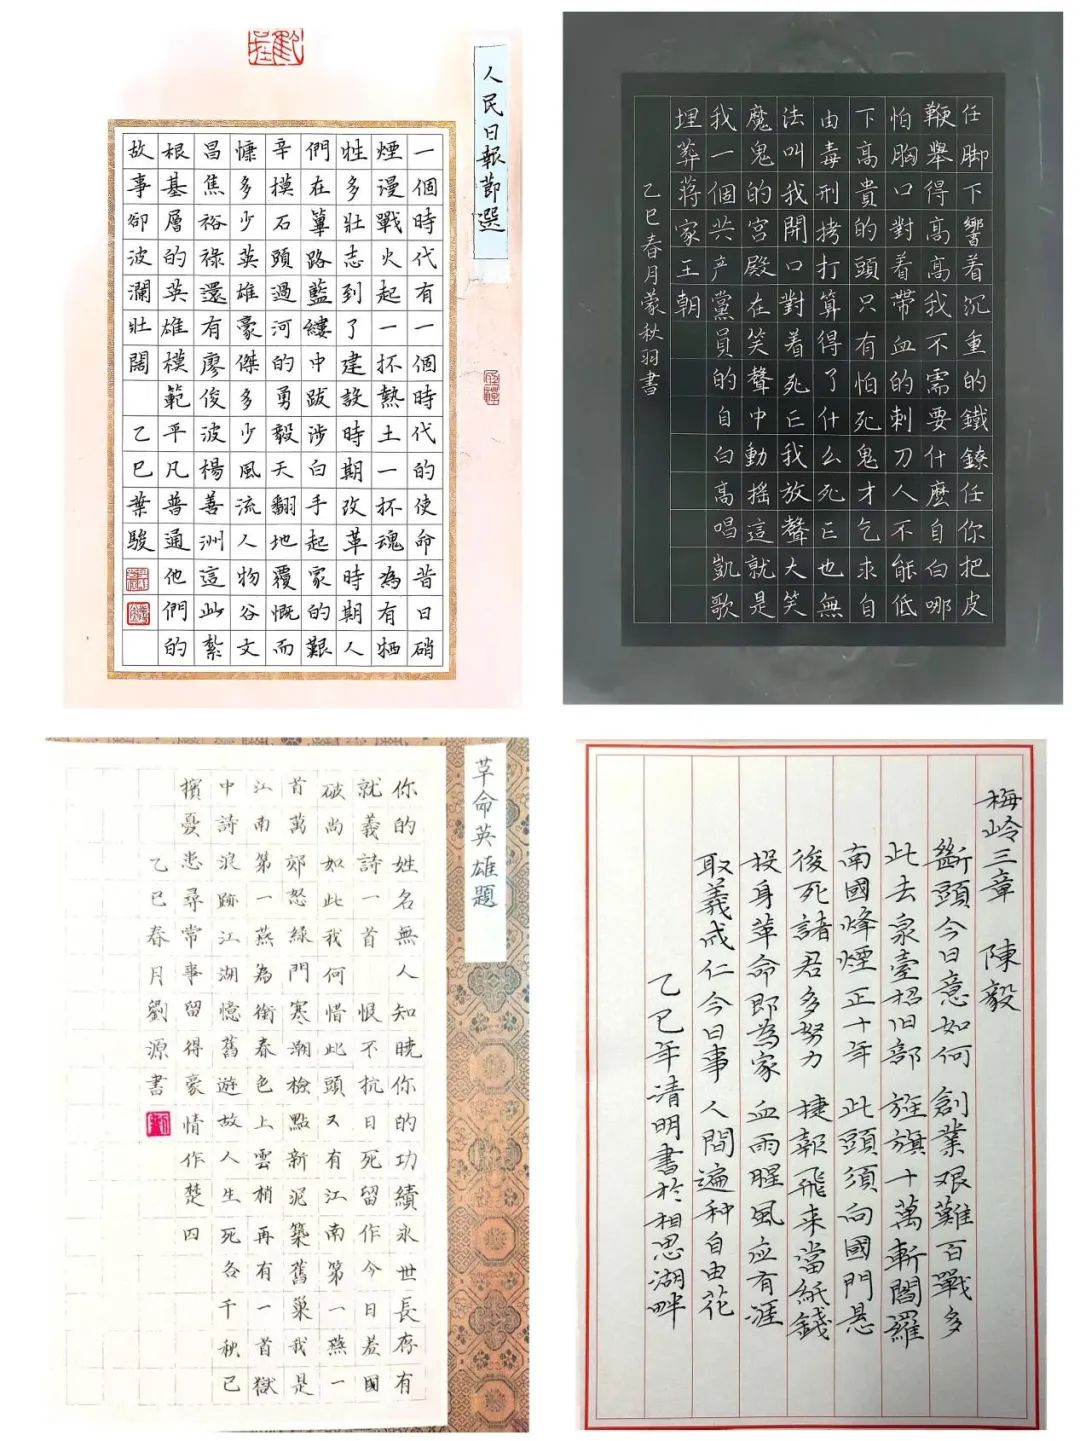 人民日報節選
一個時代有一個時代的使命昔日硝
煙漫戰火起一抔熱土一抔魂為有牺
牲多壯志到了建設時期改革時期人
們在篳路藍縷中跋涉白手起家的艱
辛摸石頭過河的勇毅天翻地覆慨而
慷多少英雄豪傑多少風流人物谷文
昌焦裕祿還有廖俊波楊善洲這此紮
根基層的英雄模範平凡普通他們的
故事卻波瀾壯闊 乙巳葉駿
任脚下響着沉重的鐵鐐任你把皮
鞭舉得高高我不需要什麼自白哪
怕胸口對着帶血的刺刀人不能低
下高貴的頭只有怕死鬼才乞求自
由毒刑拷打算得了什么死亡也無
法叫我開口對着死亡我放聲大笑
魔鬼的宮殿在笑聲中動搖這就是
我一個共产黨員的自白高唱凱歌
埋葬蔣家王朝
乙巳春月蒙秋羽書
革命英雄題
你的姓名無人知曉你的功績永世長存有
就義詩一首 恨不抗日死留作今日羞國
破尚如此我何惜此頭又有江南第一燕一
首萬郊怒綠鬥寒潮檢點新泥築舊巢我是
江南第一燕為銜春色上雲梢再有一首獄
中詩浪跡江湖憶舊遊故人生死各千秋已
擯憂患尋常事留得豪情作楚囚
乙巳春月劉源書
梅岭三章 陳毅
斷頭今日意如何 創業艰難百戰多
此去泉臺招旧部 旌旗十萬斬閻羅
南國烽煙正十年 此頭須向國門悬
後死諸君多努力 捷報飛来當紙錢
投身革命即為家 血雨腥風应有涯
取義成仁今日事 人間遍种自由花
乙巳年清明書於相思湖畔